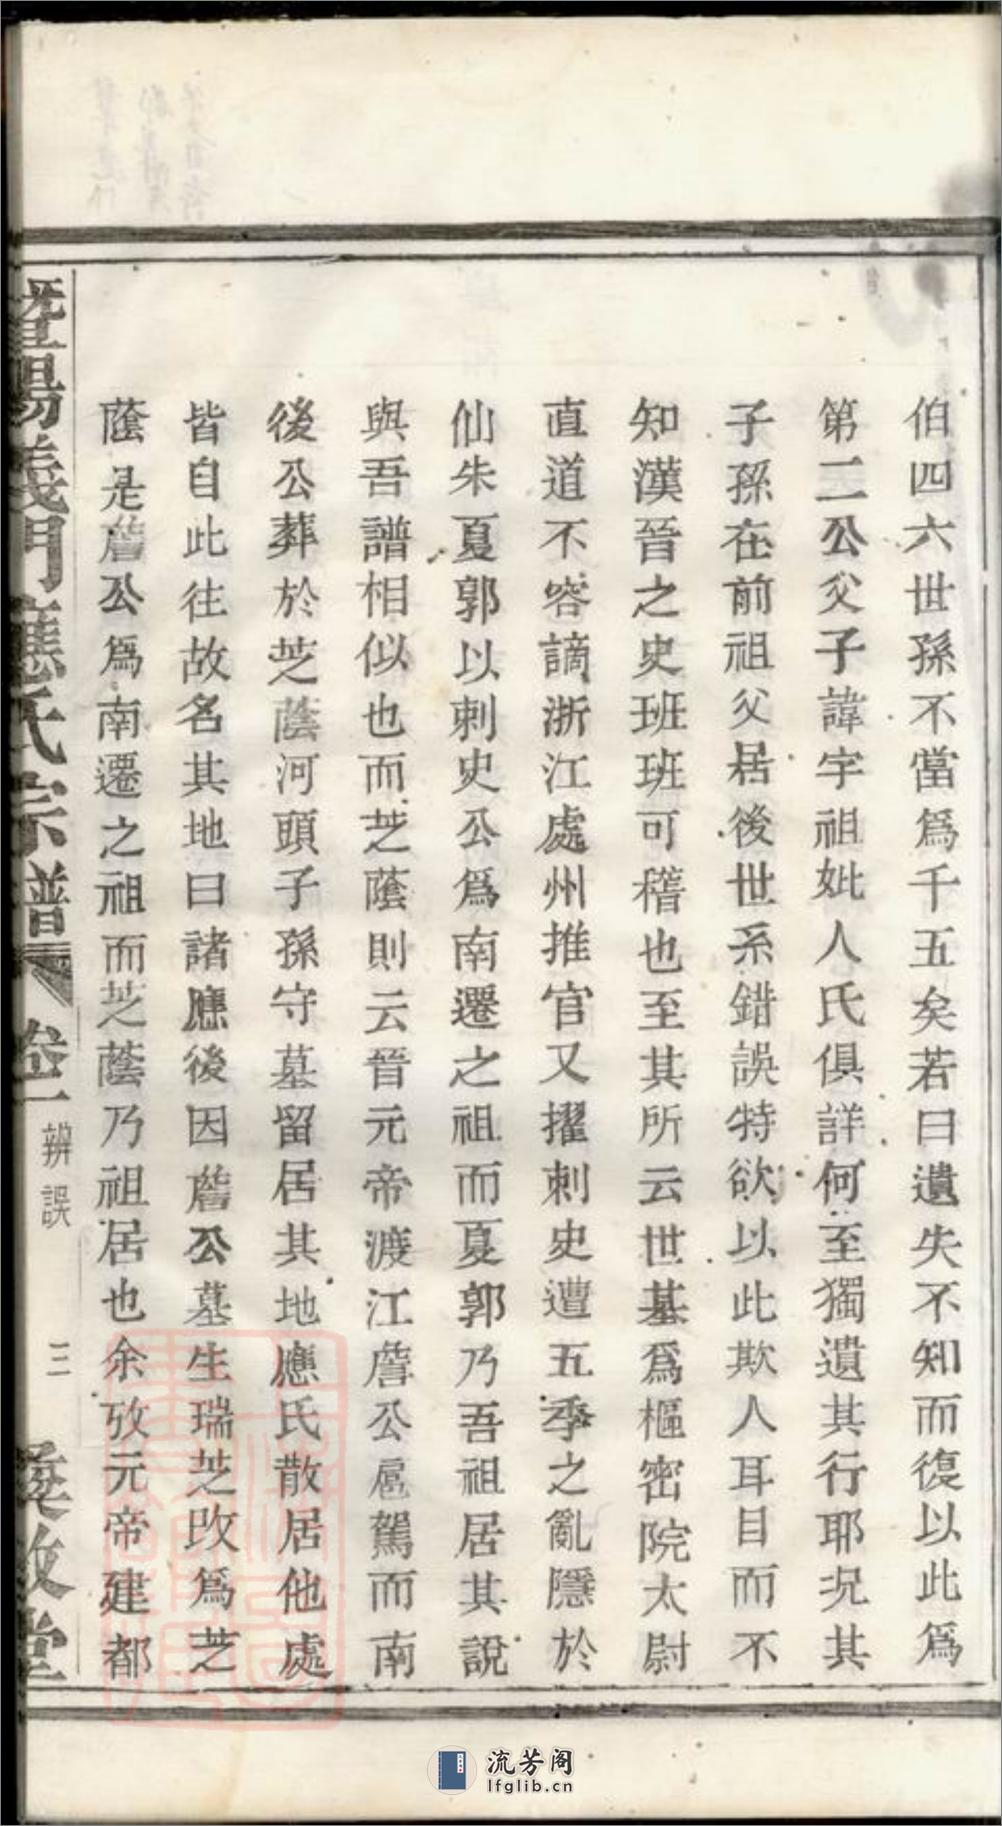 伯四六世孫不當爲千五矣若曰遺失不知而復以此爲
第二公父子諱字祖妣人氏俱詳何至獨遺其行耶况其
子孫在前祖父居後世系錯誤特欲以此欺人耳目而不
知漢晉之史班班可稽也至其所云世基爲樞密院太尉
直道不容謫浙江處州推官又擢刺史遭五季之亂隱於
仙朱夏郭以刺史公爲南遷之祖而夏郭乃吾祖居其說
與吾譜相似也而芝蔭則云晉元帝渡江詹公扈駕而南
後公葬於芝蔭河頭子孫守墓留居其地應氏散居他處
皆自此往故名其地曰諸應後因詹公墓生瑞芝改爲芝
蔭是詹公爲南遷之祖而芝蔭乃祖居也余攷元帝建都
暨陽義門應氏宗譜 卷一 辨誤 三
流芳阁
lfglib.cn